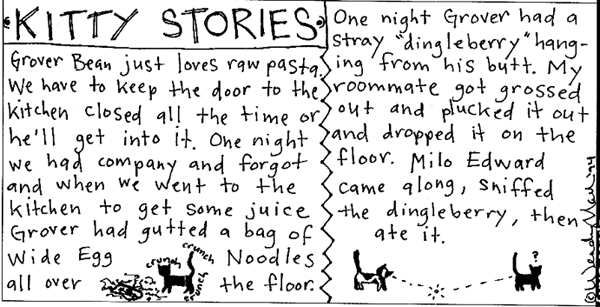 KITTY STORIES
Grover Bean just loves raw pasta.
We have to keep the door to the
kitchen closed all the time or
he'll get into it. One night
we had company and forgot
and when we went to the
kitchen to get some juice
Grover had gutted a bag of
Wide Egg Noodles
all over the floor.
crunch
crunch
crunch
One night Grover had a
stray "dingleberry" hang-
ing from his butt. My
roommate got grossed
out and plucked it out
and dropped it on the
floor. Milo Edward
came along, sniffed
the dingleberry, then
ate it.
?